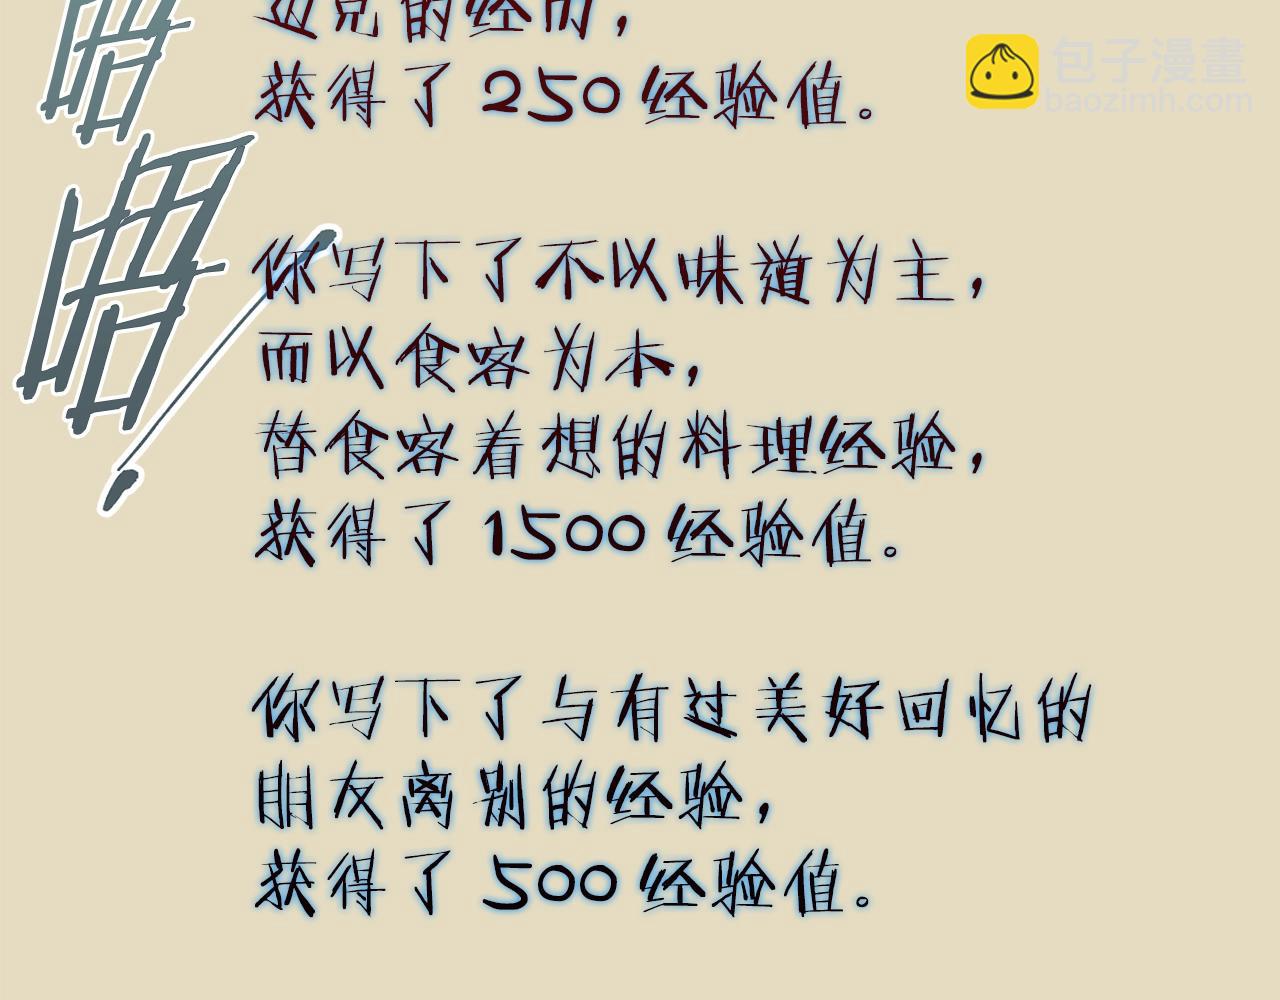 获得了 350 经验值。
包子漫畫
baozimh.com
你写下了不以味道为主，
而以食客为本，
替食客着想的料理经验，
获得了 1500 经验值。
你写下了与有过美好回忆的
朋友离别的经验，
获得了 500 经验值。